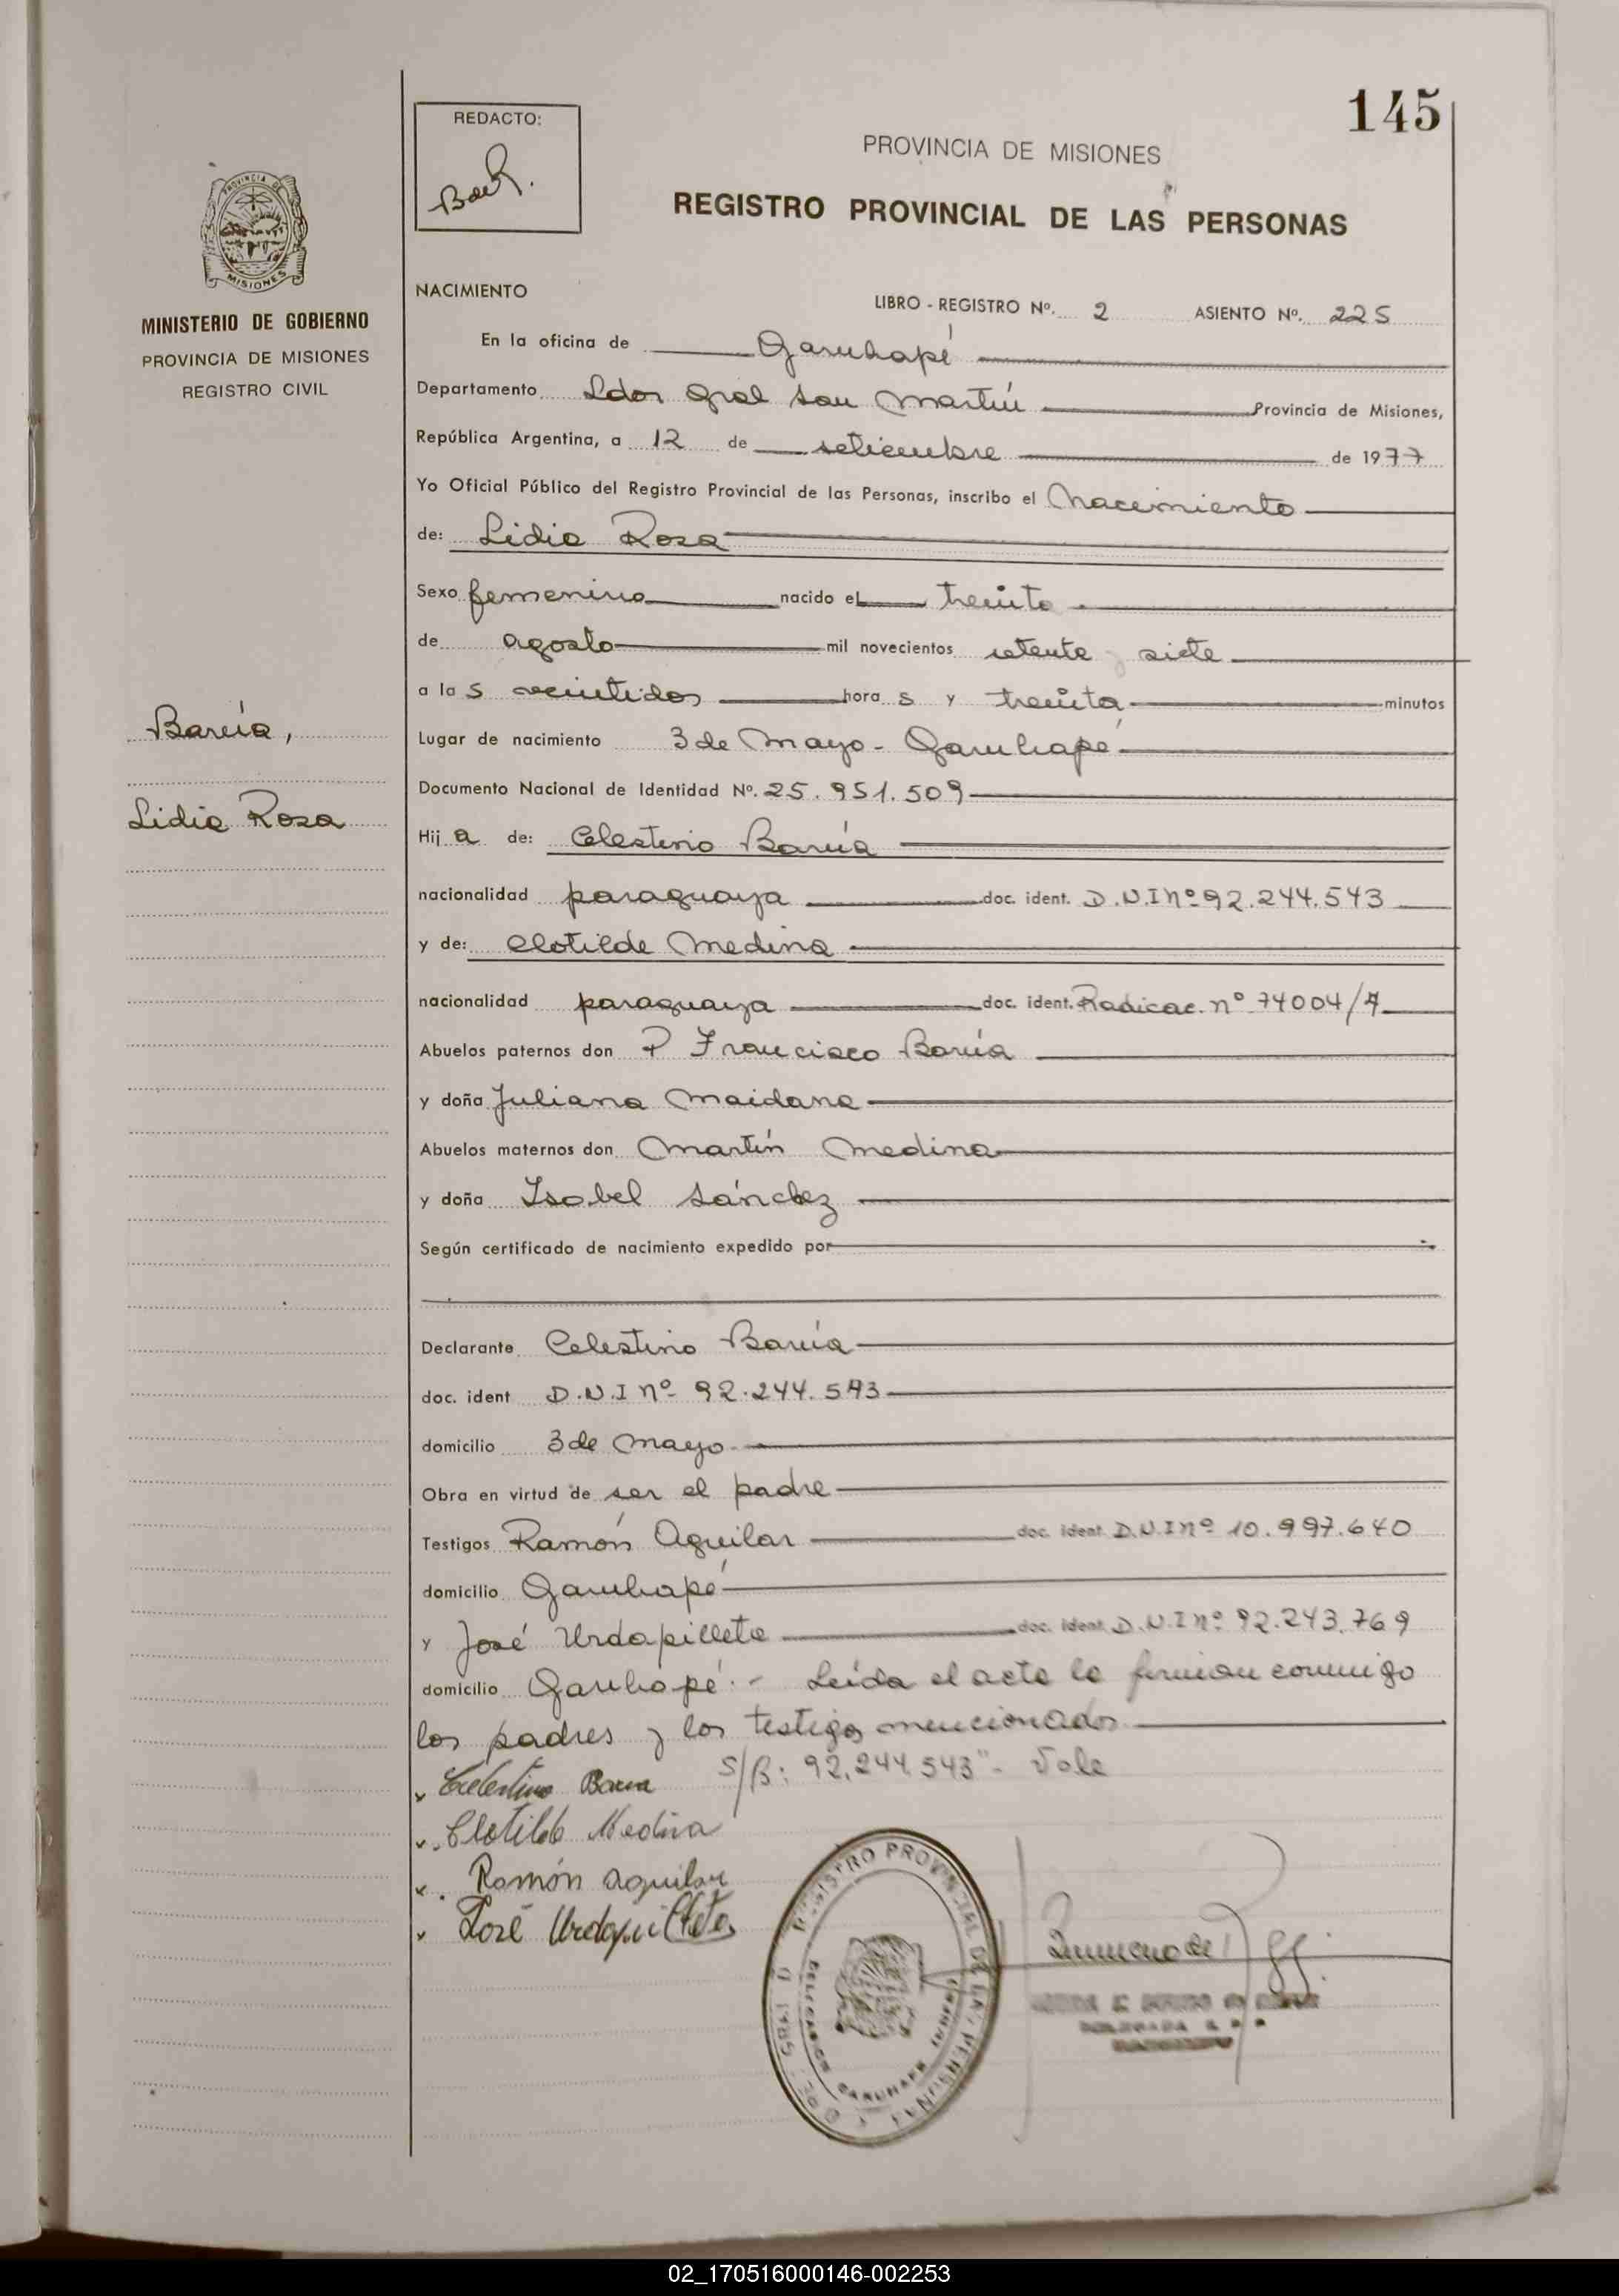 145
REDACTO:
PROVINCIA DE MISIONES
REGISTRO PROVINCIAL DE LAS PERSONAS
PROVINCIA DE
MISIONES
MINISTERIO DE GOBIERNO
PROVINCIA DE MISIONES
REGISTRO CIVIL
NACIMIENTO
LIBRO - REGISTRO Nº. 2 ASIENTO Nº. 225
En la oficina de Garuhapé
Departamento Ldor Gral San Martín Provincia de Misiones,
República Argentina, a 12 de setiembre de 1977
Yo Oficial Público del Registro Provincial de las Personas, inscribo el Nacimiento
de: Lidia Rosa
Sexo femenino nacido el treinta
de agosto mil novecientos setenta y siete
a las veintidos horas y treinta minutos
Barúa,
Lidia Rosa
Lugar de nacimiento 3 de Mayo - Garuhapé
Documento Nacional de Identidad Nº. 25.951.509
Hija de: Celestino Barúa
nacionalidad paraguaya doc. ident. D.N.I nº 92.244.543
y de: Clotilde Medina
nacionalidad paraguaya doc. ident. Radicac. nº 74004/7
Abuelos paternos don P Francisco Barúa
y doña Juliana Maidana
Abuelos maternos don Martín Medina
y doña Isabel Sánchez
Según certificado de nacimiento expedido por
Declarante Celestino Barúa
doc. ident D.N.I nº 92.244.543
domicilio 3 de Mayo
Obra en virtud de ser el padre
Testigos Ramón Aguilar doc. ident. D.N.I nº 10.997.640
domicilio Garuhapé
y José Urdapilleta doc. ident. D.N.I nº 92.243.769
domicilio Garuhapé.- Leída el acta la firman conmigo
los padres y los testigos mencionados
S/B: 92.244.543"- Vale
Celestino Barua
Clotilde Medina
Ramón Aguilar
José Urdapilleta
REGISTRO PROVINCIAL DE LAS PERSONAS
GARUHAPE
02_170516000146-002253